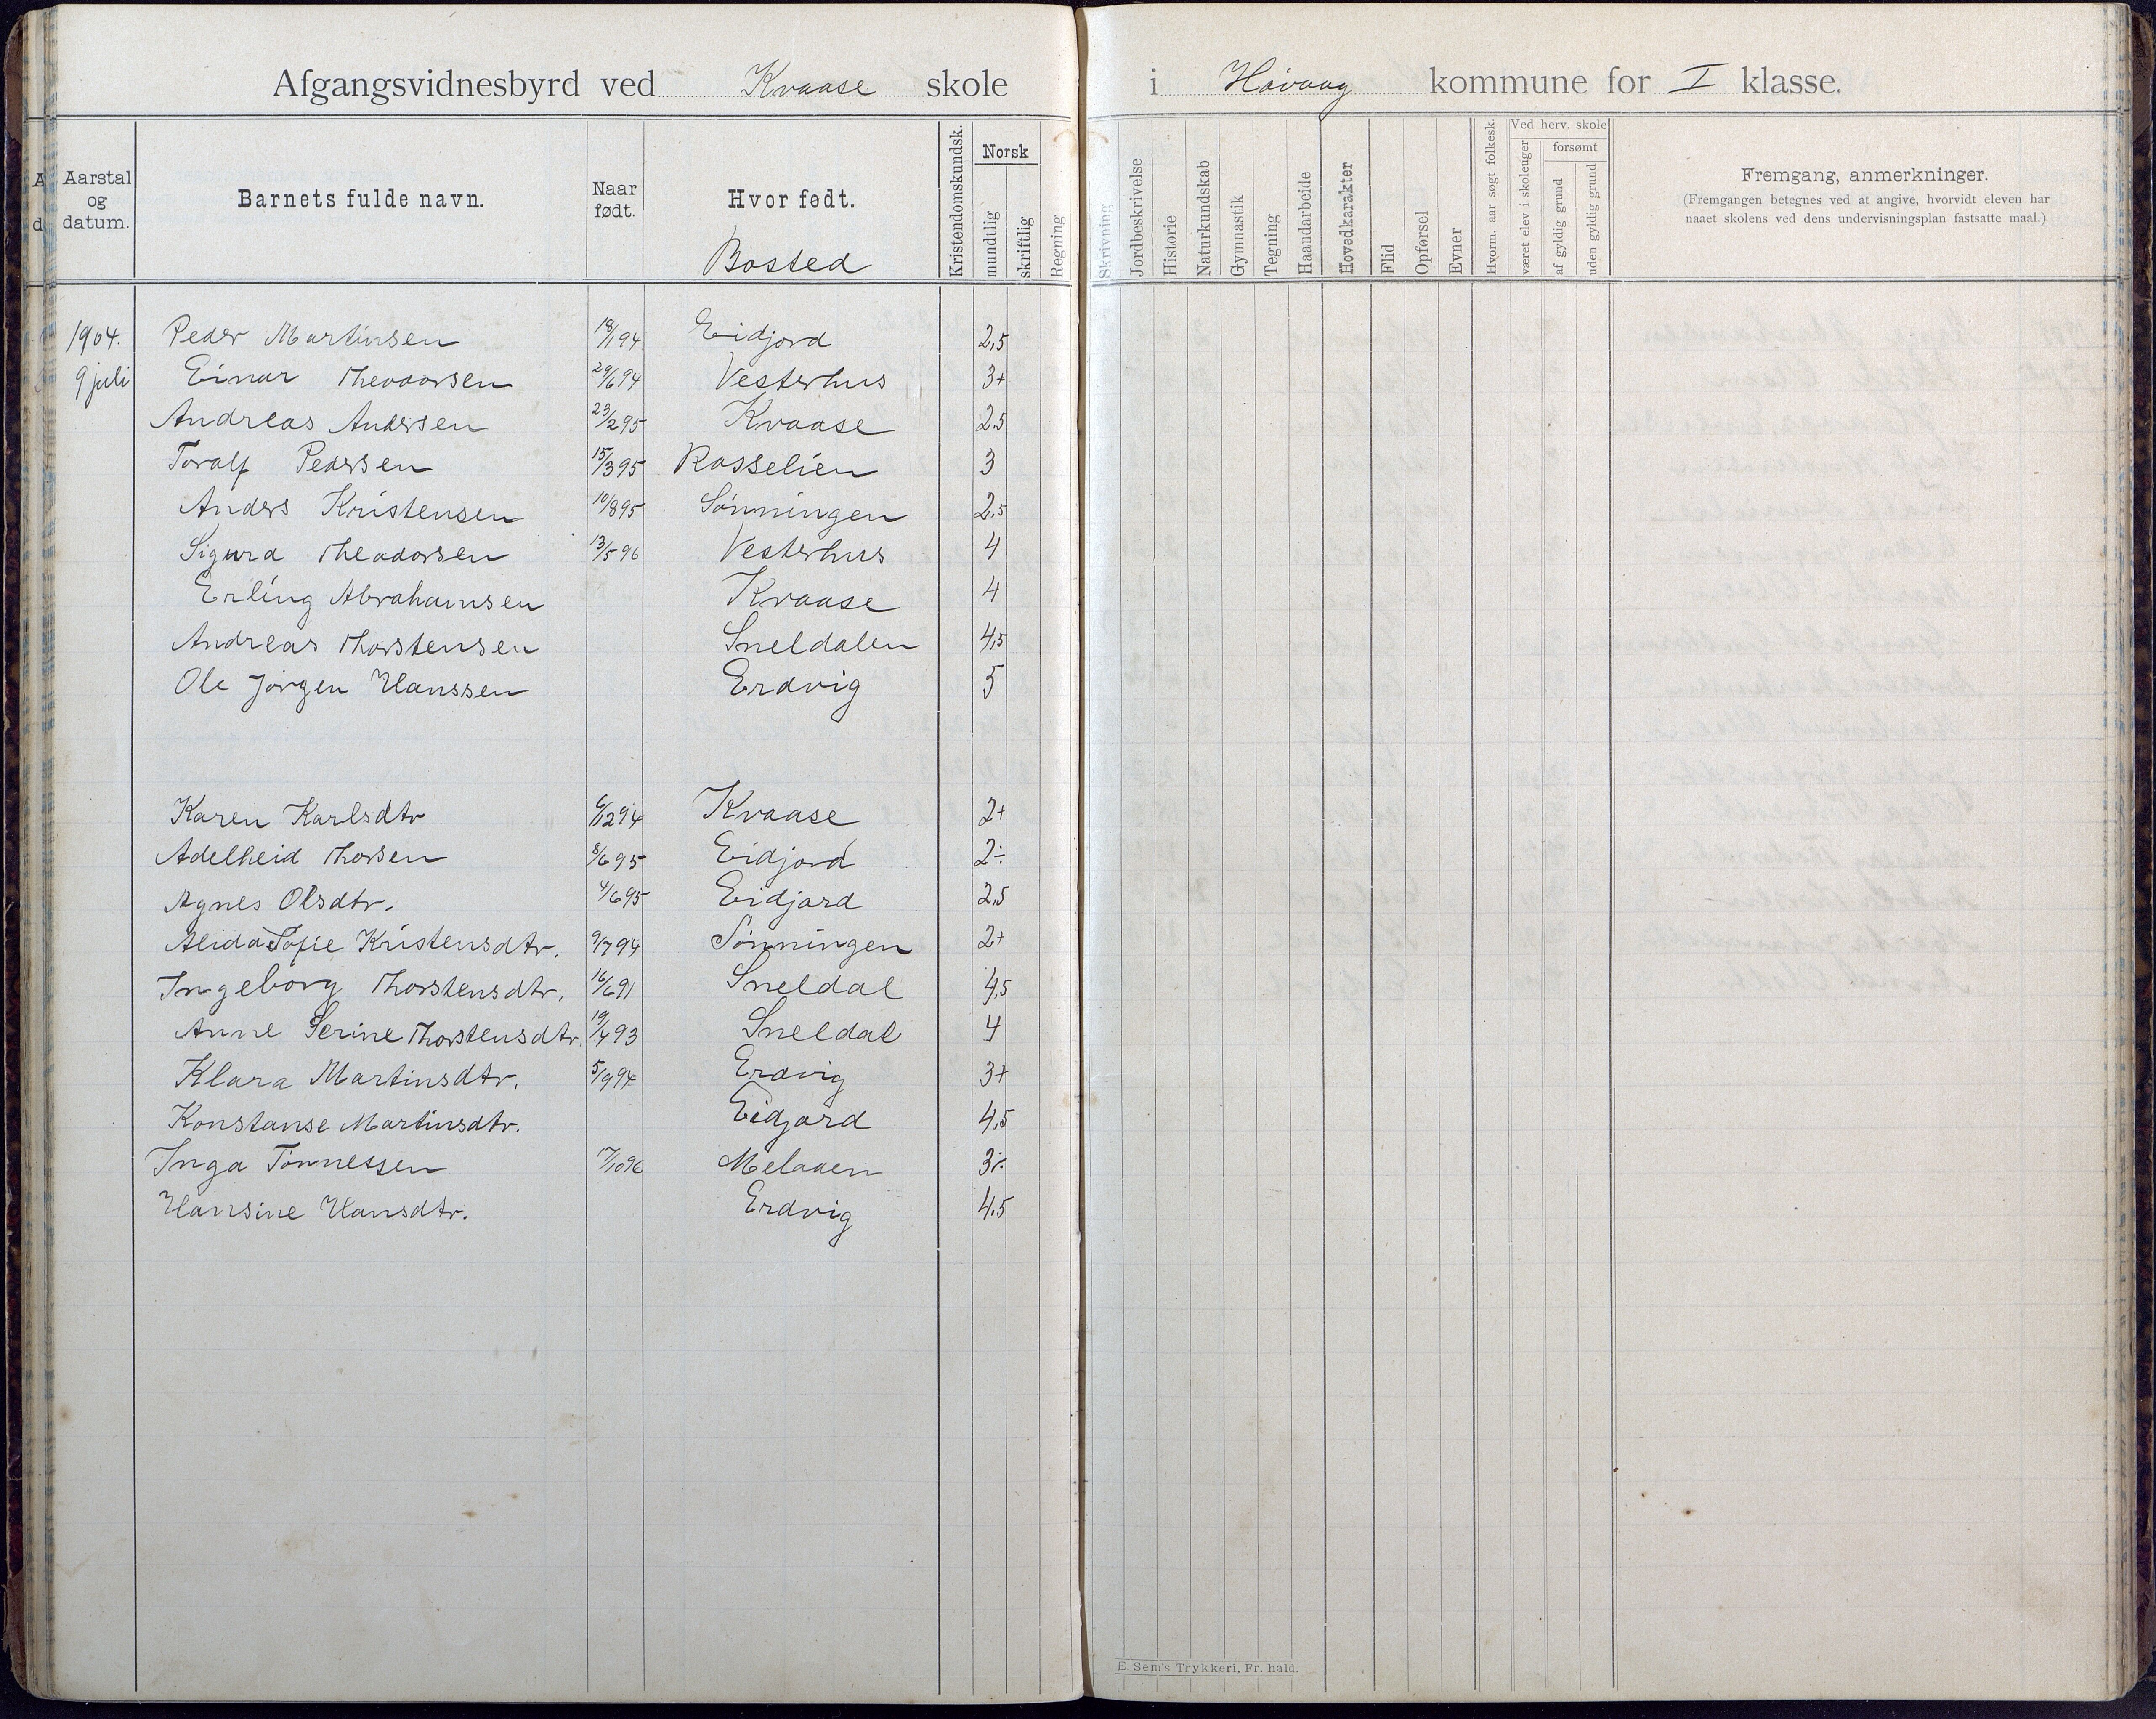 Afgangsvidnesbyrd ved Kvaase skole i Høivaag kommune for I klasse.
Aarstal og datum.
Barnets fulde navn.
Naar født.
Hvor født.
Bosted
Kristendomskundsk.
Norsk
mundtlig
skriftlig
Regning
Skrivning
Jordbeskrivelse
Historie
Naturkundskab
Gymnastik
Tegning
Haandarbeide
Hovedkarakter
Flid
Opførsel
Evner
Hvorm. aar søgt folkesk.
Ved herv. skole
været elev i skoleuger
forsømt
af gyldig grund
uden gyldig grund
Fremgang, anmerkninger.
(Fremgangen betegnes ved at angive, hvorvidt eleven har
naaet skolens ved dens undervisningsplan fastsatte maal.)
1904. Peder Martinsen 18/1 94 Eidjord 2,5
9 juli Einar Theodorsen 29/6 94 Vesterhus 3+
Andreas Andersen 23/2 95 Kvaase 2,5
Toralf Pedersen 15/3 95 Rosselien 3
Anders Kristensen 10/8 95 Sønningen 2,5
Sigurd Theodorsen 13/5 96 Vesterhus 4
Erling Abrahamsen Kvaase 4
Andreas Thorstensen Sneldalen 4,5
Ole Jørgen Hanssen Erdvig 5
Karen Karlsdtr 6/12 94 Kvaase 2+
Adelheid Thorsen 8/6 95 Eidjord 2÷
Agnes Olsdtr. 4/6 95 Eidjord 2,5
Alida Sofie Kristensdtr. 9/7 94 Sønningen 2+
Ingeborg Thorstensdtr. 16/6 91 Sneldal 4,5
Anne Serine Thorstensdtr. 93 Sneldal 4
Klara Martinsdtr. 5/9 94 Erdvig 3+
Konstanse Martinsdtr. Eidjord 4,5
Inga Tønnessen 17/10 96 Melaaen 3÷
Hansine Hansdtr. Erdvig 4,5
E. Sem's Trykkeri, Fr. hald.